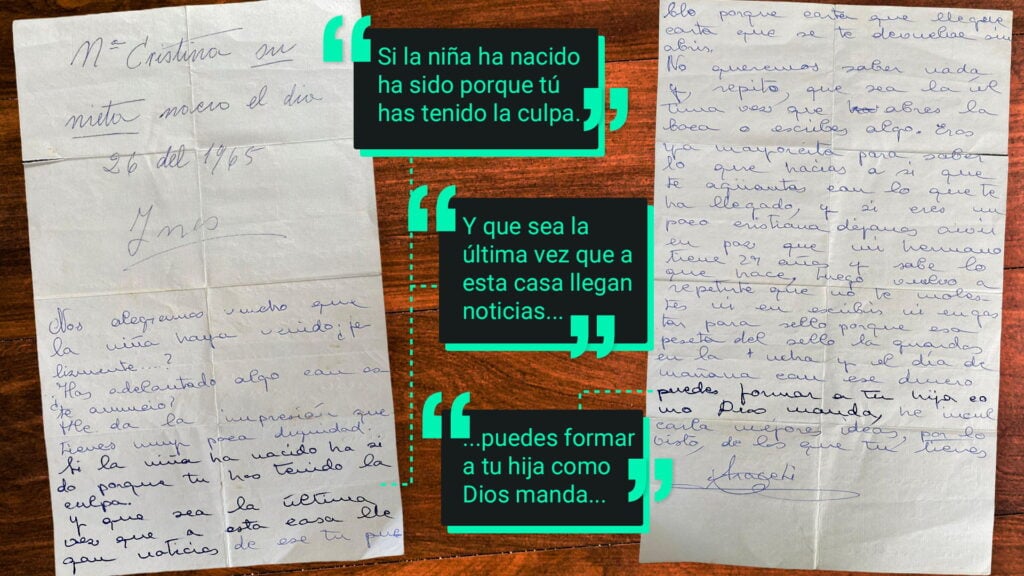 Mª Cristina su
nieta nacio el dia
26 del 1965
Ynes
Nos alegramos mucho que
la niña haya venido ¿fe
lizmente...?
¿Has adelantado algo con es
te anuncio?
Me da la impresión que
tienes muy poca dignidad.
Si la niña ha nacido ha si
do porque tu has tenido la
culpa.
Y que sea la última
vez que a esta casa lle
gan noticias de ese tu pue
Si la niña ha nacido
ha sido porque tú
has tenido la culpa.
Y que sea la
última vez que a
esta casa llegan
noticias...
...puedes formar
a tu hija como
Dios manda...
blo porque carta que llegue
carta que se te devuelve sin
abrir.
No queremos saber nada
y, repito, que sea la úl
tima vez que abres la
boca o escribes algo. Eres
ya mayorcita para saber
lo que hacías a si que
te aguantas con lo que te
ha llegado, y si eres un
poco cristiana déjanos vivir
en paz que mi hermano
tiene 29 años y sabe lo
que hace, luego vuelvo a
repetirte que no te moles
tes ni en escribir ni en gas
tar para sello porque esa
peseta del sello la guardas
en la hucha y el día de
mañana con ese dinero
puedes formar a tu hija co
mo Dios manda, he incul
carla mejores ideas, por lo
visto de las que tu tienes
Araceli